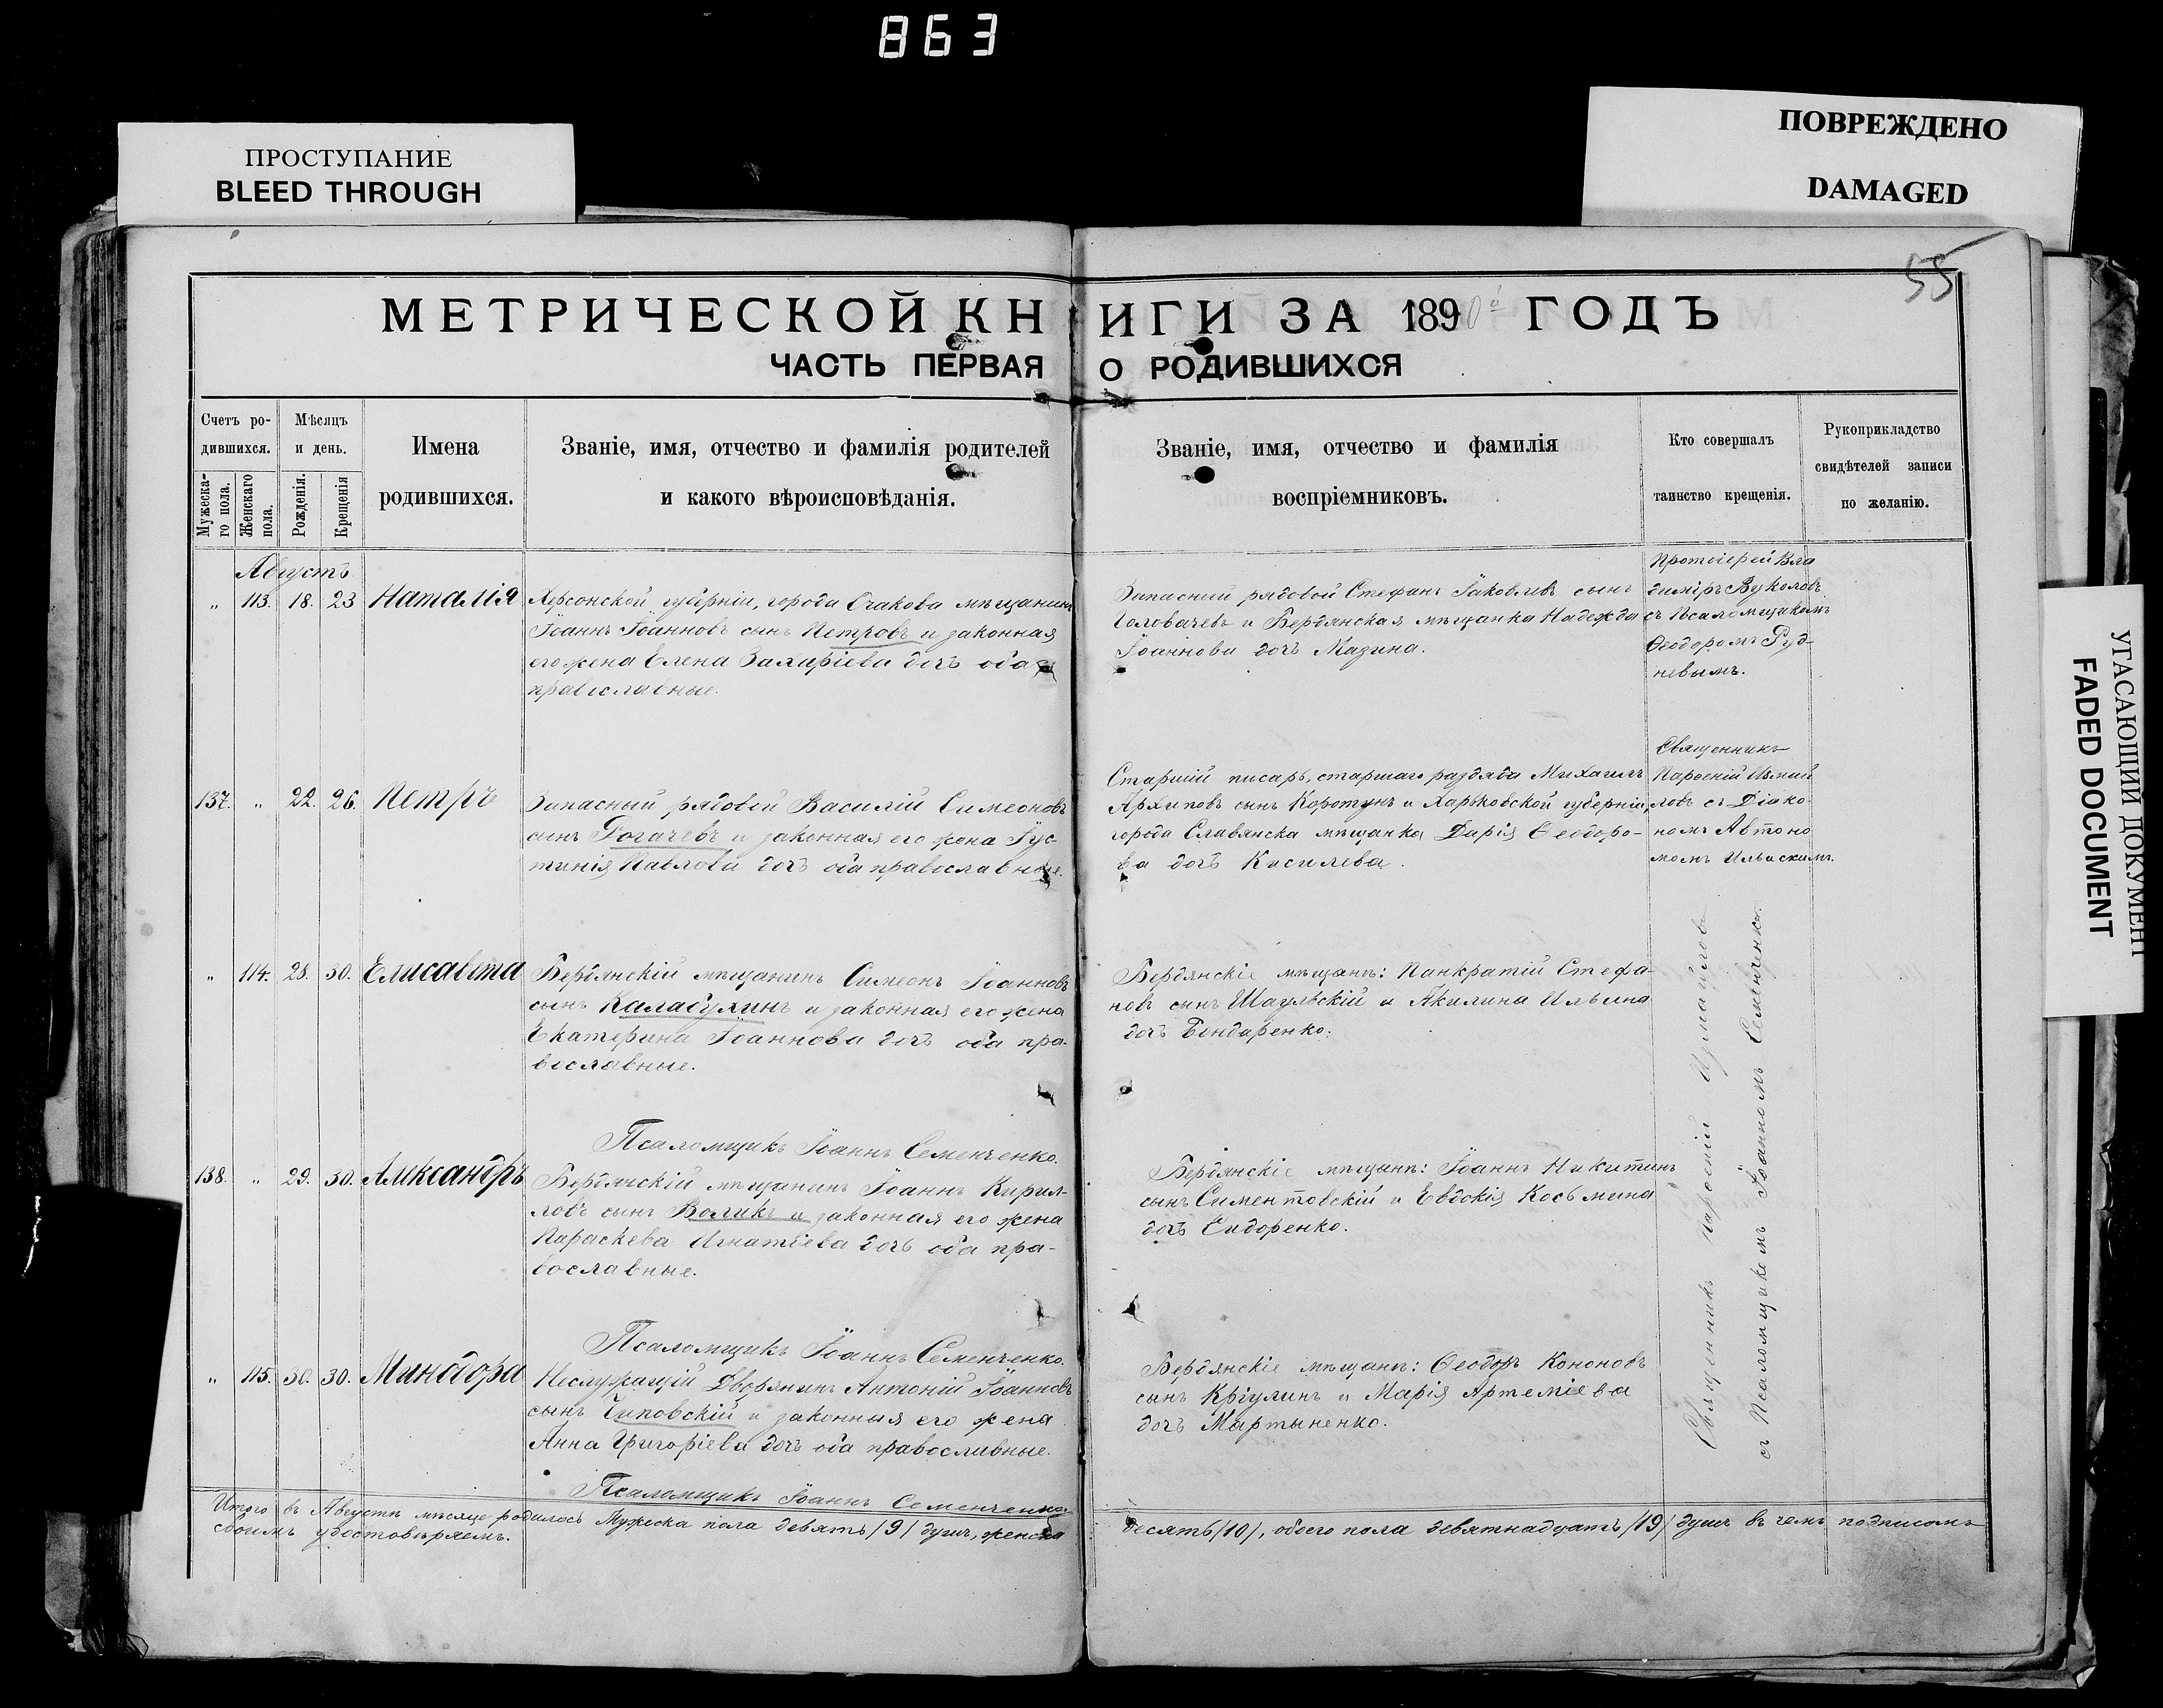 863
ПРОСТУПАНИЕ
BLEED THROUGH
ПОВРЕЖДЕНО
DAMAGED
УГАСАЮЩИЙ ДОКУМЕНТ
FADED DOCUMENT
55
МЕТРИЧЕСКОЙ КНИГИ ЗА 1890й ГОДЪ
ЧАСТЬ ПЕРВАЯ О РОДИВШИХСЯ
Счетъ ро-
дившихся.
Мужеска-
го пола.
Женскаго
пола.
Мѣсяцъ
и день.
Рожденія.
Крещенія
Имена
родившихся.
Званіе, имя, отчество и фамилія родителей
и какого вѣроисповѣданія.
Званіе, имя, отчество и фамилія
воспріемниковъ.
Кто совершалъ
таинство крещенія.
Рукоприкладство
свидѣтелей записи
по желанію.
Августъ
„ 113. 18. 23 Наталія
Херсонской губерніи, города Очакова мѣщанинъ
Іоаннъ Іоанновъ сынъ Петровъ и законная
его жена Елена Захаріева дочь оба
православные.
Запасный рядовой Стефанъ Іаковлевъ сынъ
Головачевъ и Бердянская мѣщанка Надежда
Іоаннова дочь Мазина.
Протоіерей Вла
диміръ Вуколовъ
съ Псаломщикомъ
Ѳеодоромъ Руд-
невымъ.
137. „ 22. 26. Петръ
Запасный рядовой Василій Симеоновъ
сынъ Рогачевъ и законная его жена Іус-
тинія Павлова дочь оба православные.
Старшій писарь, старшаго разряда Михаилъ
Архиповъ сынъ Коротунъ и Харьковской губерніи,
города Славянска мѣщанка Дарія Ѳеодоро-
ва дочь Киселева.
Священникъ
Пароеній Измай
ловъ съ Діако-
номъ Автоно
момъ Ильаскимъ.
„ 114. 28. 30. Елисавета
Бердянскій мѣщанинъ Симеонъ Іоанновъ
сынъ Калабухинъ и законная его жена
Екатерина Іоаннова дочь оба пра-
вославные.
Бердянскіе мѣщане: Панкратій Стефа-
новъ сынъ Шаульскій и Акилина Ильина
дочь Бондаренко.
Псаломщикъ Іоаннъ Семенченко.
138. „ 29. 30. Александръ
Бердянскій мѣщанинъ Іоаннъ Кирил-
ловъ сынъ Воликъ и законная его жена
Параскева Игнатіева дочь оба пра-
вославные.
Бердянскіе мѣщане: Іоаннъ Никитинъ
сынъ Симентовскій и Евдокія Косьмина
дочь Сидоренко.
Псаломщикъ Іоаннъ Семенченко.
„ 115. 30. 30. Минодора
Неслужащій Дворянинъ Антоній Іоанновъ
сынъ Чиповскій и законныя его жена
Анна Григоріева дочь оба православные.
Бердянскіе мѣщане: Ѳеодоръ Кононовъ
сынъ Кріулинъ и Марія Артеміева
дочь Мартыненко.
Священникъ Пароеній Измайловъ
съ Псаломщикомъ Іоанномъ Семенченко.
Псаломщикъ Іоаннъ Семенченко.
Итого въ Августѣ мѣсяце родилось Мужеска пола девять /9/ душъ, женска десять /10/, обоего пола девятнадцать /19/ душъ въ чемъ подписомъ
своимъ удостовѣряемъ.